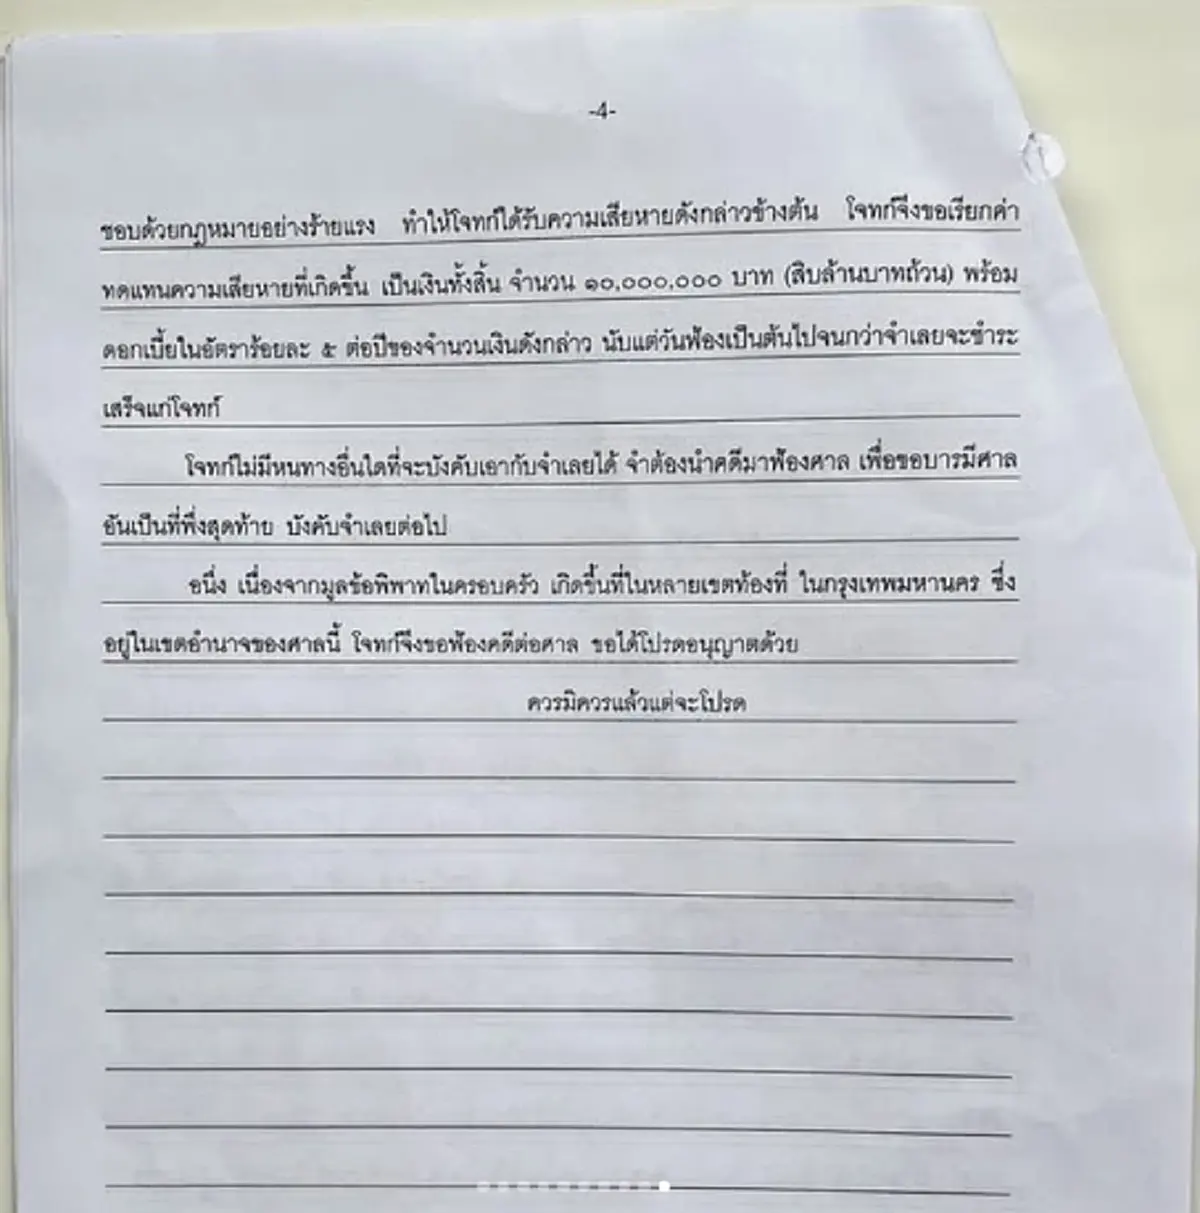 -4-
ชอบด้วยกฎหมายอย่างร้ายแรง ทำให้โจทก์ได้รับความเสียหายดังกล่าวข้างต้น โจทก์จึงขอเรียกค่า
ทดแทนความเสียหายที่เกิดขึ้น เป็นเงินทั้งสิ้น จำนวน ๑๐,๐๐๐,๐๐๐ บาท (สิบล้านบาทถ้วน) พร้อม
ดอกเบี้ยในอัตราร้อยละ ๕ ต่อปีของจำนวนเงินดังกล่าว นับแต่วันฟ้องเป็นต้นไปจนกว่าจำเลยจะชำระ
เสร็จแก่โจทก์
โจทก์ไม่มีหนทางอื่นใดที่จะบังคับเอากับจำเลยได้ จำต้องนำคดีมาฟ้องศาล เพื่อขอบารมีศาล
อันเป็นที่พึ่งสุดท้าย บังคับจำเลยต่อไป
อนึ่ง เนื่องจากมูลข้อพิพาทในครอบครัว เกิดขึ้นที่ในหลายเขตท้องที่ ในกรุงเทพมหานคร ซึ่ง
อยู่ในเขตอำนาจของศาลนี้ โจทก์จึงขอฟ้องคดีต่อศาล ขอได้โปรดอนุญาตด้วย
ควรมิควรแล้วแต่จะโปรด